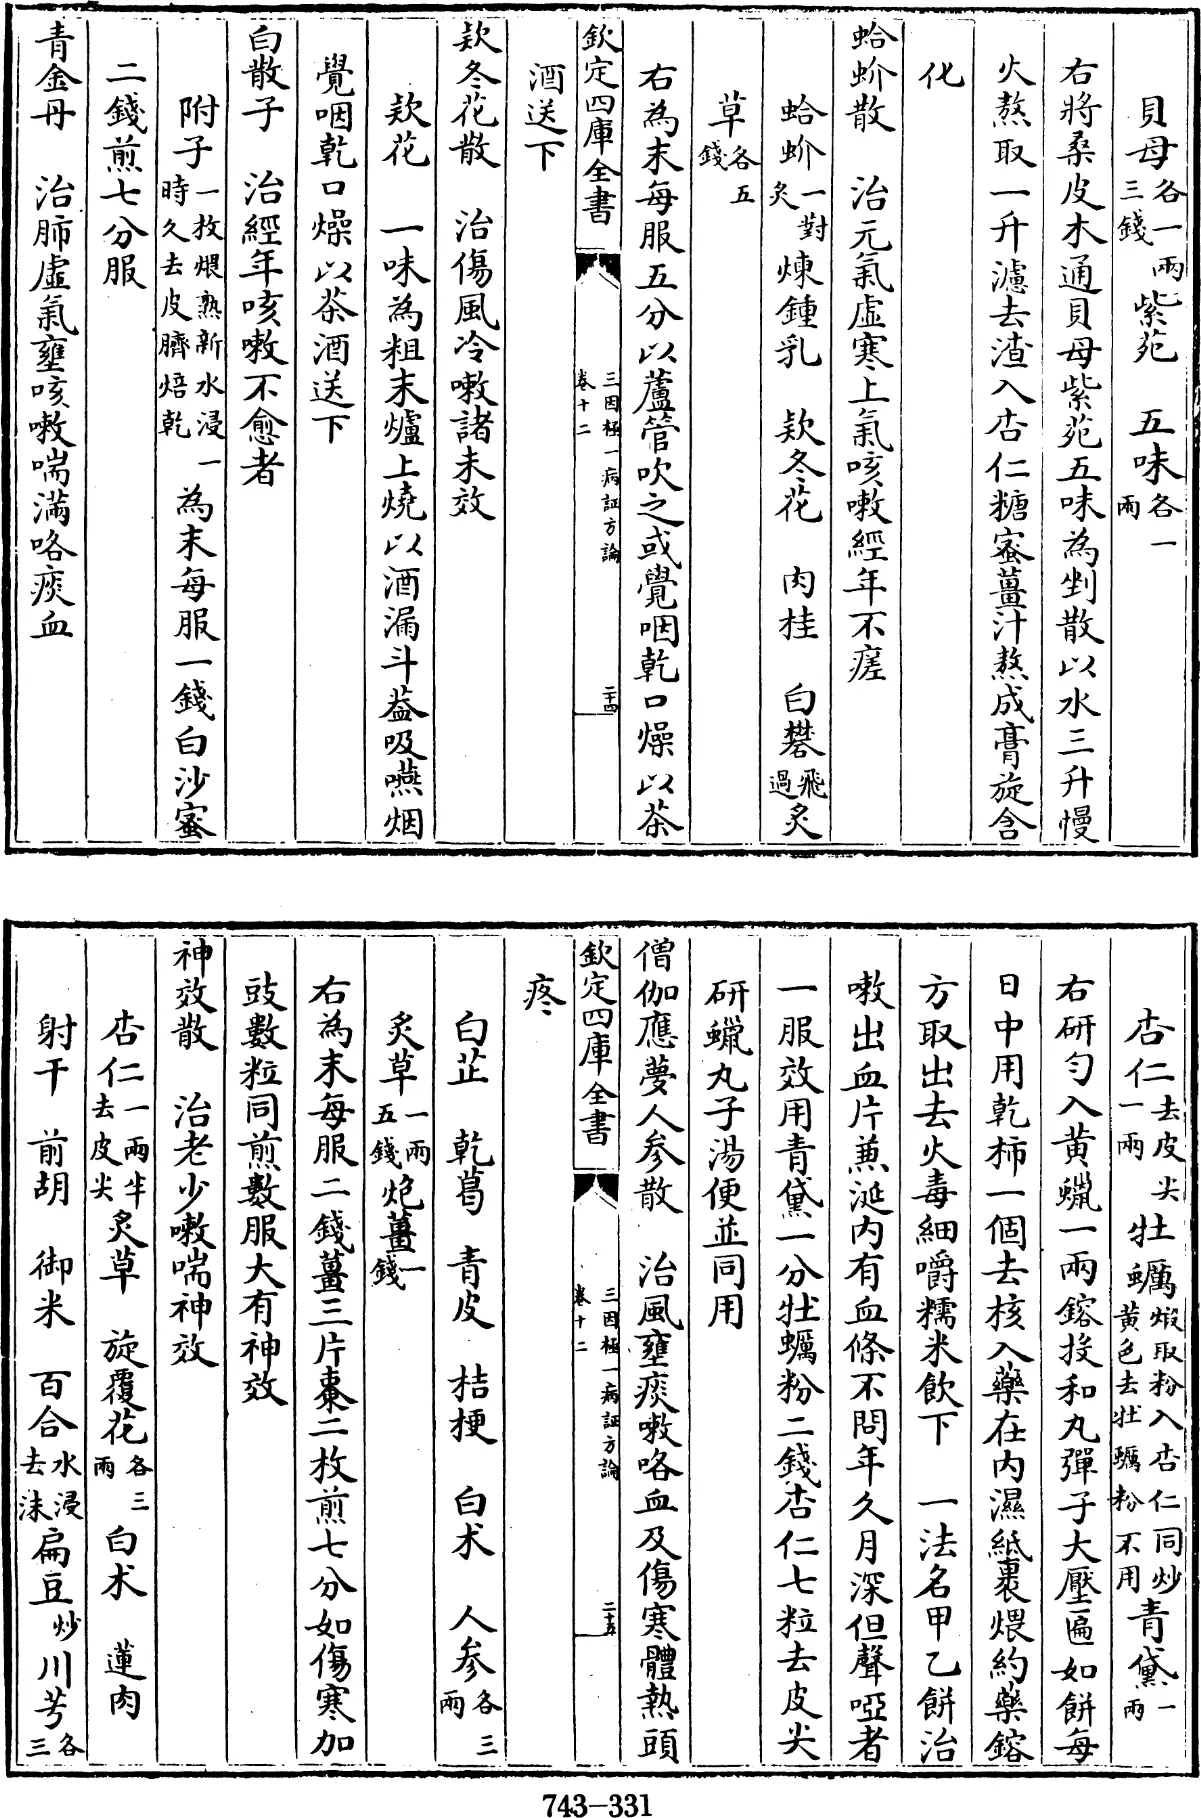 貝母各一兩三錢紫苑　五味各一兩
右將桑皮木通貝母紫苑五味為剉散以水三升慢
火熬取一升濾去渣入杏仁糖蜜薑汁熬成膏旋含
化
蛤蚧散　治元氣虛寒上氣咳嗽經年不瘥
蛤蚧一對炙煉鍾乳　欵冬花　肉桂　白礬飛過炙
草各五錢
右為末每服五分以蘆管吹之或覺咽乾口燥以茶
欽定四庫全書　三因極一病証方論卷十二　二十四
酒送下
欵冬花散　治傷風冷嗽諸未效
欵花　一味為粗末爐上燒以酒漏斗葢吸嚥烟
覺咽乾口燥以茶酒送下
白散子　治經年咳嗽不愈者
附子一枚煨熟新水浸一時久去皮臍焙乾　為末每服一錢白沙蜜
二錢煎七分服
青金丹　治肺虛氣壅咳嗽喘滿咯痰血
杏仁去皮尖一兩牡蠣煅取粉入杏仁同炒黃色去牡蠣粉不用青黛一兩
右研勻入黃蠟一兩鎔投和丸彈子大壓匾如餅每
日中用乾柿一個去核入藥在內濕紙裹煨約藥鎔
方取出去火毒細嚼糯米飲下　一法名甲乙餅治
嗽出血片兼涎內有血條不問年久月深但聲啞者
一服效用青黛一分牡蠣粉二錢杏仁七粒去皮尖
研蠟丸子湯便並同用
僧伽應夢人參散　治風壅痰嗽咯血及傷寒體熱頭
欽定四庫全書　三因極一病証方論卷十二　二十五
疼
白芷　乾葛　青皮　桔梗　白朮　人參各三兩
炙草一兩五錢炮薑一錢
右為末每服二錢薑三片棗二枚煎七分如傷寒加
豉數粒同煎數服大有神效
神效散　治老少嗽喘神效
杏仁一兩半去皮尖炙草　旋覆花各三兩白朮　蓮肉
射干　前胡　御米　百合水浸去沫扁豆炒川芎各三
743-331